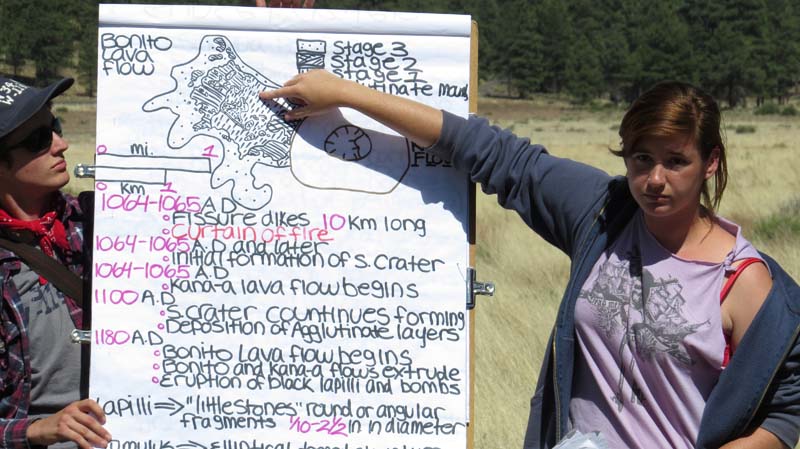 Bonito
Lava
Flow
Stage 3
Stage 2
Stage 1
mi. 1
0
km 1
0
1064-1065 A.D
Fissure dikes 10 Km long
Curtain of fire
1064-1065 A.D and later
Initial formation of s. crater
1064-1065 A.D
Kana-a lava flow begins
1100 A.D
S. crater countinues forming
Deposition of Agglutinate layers
1180 A.D
Bonito Lava flow begins
Bonito and Kana-a flows extrude
Eruption of black lapilli and bombs
Lapilli => "little stones" round or angular
fragments 1/10-2 1/2 in in diameter